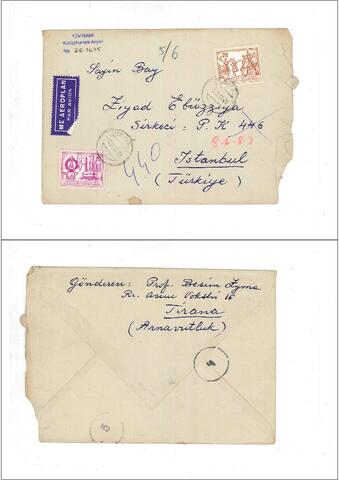 TDV İSAM
Kütüphanesi Arşivi
No ZE.1695
5/6
Sayin Bay
ME AEROPLAN
PAR AVION
Ziyad Ebüzziya
Sirkeci: P.K 446
8.6.82
Istanbul
440
(Türkiye)
Gönderen: Prof. Besim Zyma
Rr. Asim Vokshi 16
Tirana
(Arnavutluk)